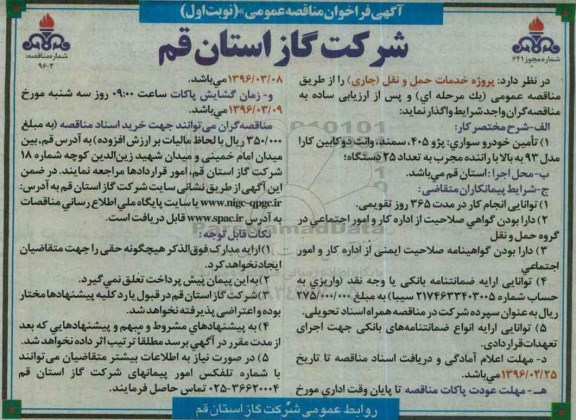 آگهی فراخوان مناقصه عمومی»(نوبت اول)
شرکت گاز استان قم
شماره مجوز ۶۴۱
شماره مناقصه:
۹۶-۲
در نظر دارد: پروژه خدمات حمل و نقل (جاری) را از طریق
مناقصه عمومی (یك مرحله ای) و پس از ارزیابی ساده به
مناقصه گران واجد شرایط واگذار نماید:
الف-شرح مختصر کار:
۱) تأمین خودرو سواری: پژو ۴۰۵، سمند، وانت دوکابین کارا
مدل ۹۳ به بالا با راننده مجرب به تعداد ۲۵ دستگاه؛
ب- محل اجرا : استان قم می باشد.
ج-شرایط پیمانکاران متقاضی:
۱) توانایی انجام کار در مدت ۳۶۵ روز تقویمی.
۲) دارا بودن گواهی صلاحیت از اداره کار و امور اجتماعی در
گروه حمل و نقل
۳) دارا بودن گواهینامه صلاحیت ایمنی از اداره کار و امور
اجتماعی
۴) توانایی ارایه ضمانتنامه بانکی یا وجه نقد (واریزی به
حساب شماره ۲۱۷۴۶۳۳۴۰۳۰۰۵ سیبا) به مبلغ ۲۷۵/۰۰۰/۰۰۰
ریال به عنوان سپرده شرکت در مناقصه همراه اسناد تحویلی.
۵) توانایی ارایه انواع ضمانتنامه های بانکی جهت اجرای
تعهدات قراردادی.
د- مهلت اعلام آمادگی و دریافت اسناد مناقصه تا تاریخ
۱۳۹۶/۰۲/۲۵ می باشد.
هـ- مهلت عودت پاکات مناقصه تا پایان وقت اداری مورخ
۱۳۹۶/۰۳/۰۸ می باشد.
و- زمان گشایش پاکات ساعت ۰۹:۰۰ روز سه شنبه مورخ
۱۳۹۶/۰۳/۰۹ می باشد.
مناقصه گران می توانند جهت خرید اسناد مناقصه (به مبلغ
۳۵۰/۰۰۰ ریال با لحاظ مالیات بر ارزش افزوده) به آدرس قم، بین
میدان امام خمینی و میدان شهید زین الدین کوچه شماره ۱۸
شرکت گاز استان قم، امور قراردادها مراجعه نمایند. در ضمن
این آگهی از طریق نشانی سایت شرکت گاز استان قم به آدرس:
www.nigc-qpgc.ir یا سایت پایگاه ملی اطلاع رسانی مناقصات
به آدرس www.spac.ir قابل دریافت است.
نکات قابل توجه :
۱) ارایه مدارک فوق الذکر هیچگونه حقی را جهت متقاضیان
ایجاد نخواهد کرد.
۲) به این پیمان پیش پرداخت تعلق نمی گیرد.
۳) شرکت گاز استان قم در قبول یا رد کلیه پیشنهادها مختار
بوده و اعتراضی پذیرفته نخواهد شد.
۴) به پیشنهادهای مشروط و مبهم و پیشنهادهایی که بعد
از مدت مقرر در آگهی برسد مطلقا ترتیب اثر داده نخواهد شد.
۵) در صورت نیاز به اطلاعات بیشتر متقاضیان می توانند
با شماره تلفکس امور پیمانهای شرکت گاز استان قم
۰۲۵-۳۶۶۲۰۰۰۴ تماس حاصل فرمایند.
روابط عمومی شرکت گاز استان قم